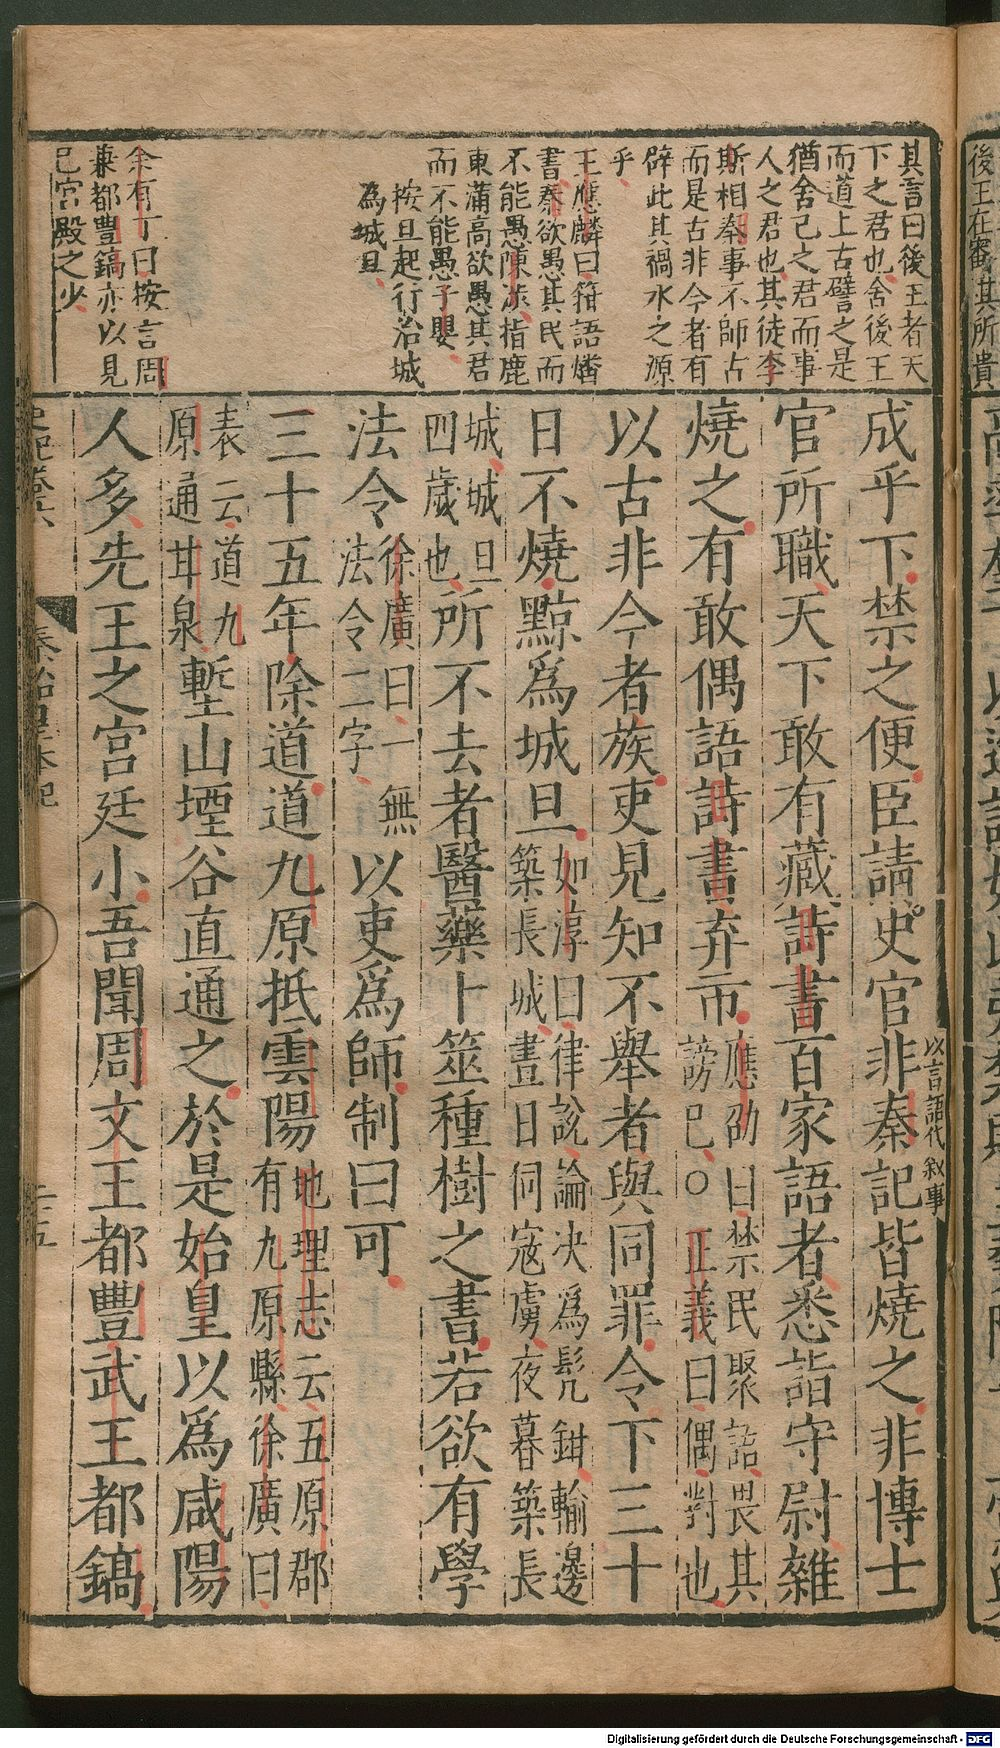 後王在審其所貴
其言曰後王者天
下之君也舍後王
而道上古譬之是
猶舍己之君而事
人之君也其徒李
斯相秦事不師古
而是古非今者有
辟此其禍水之源
乎
王應麟曰箝語燔
書秦欲愚其民而
不能愚陳涉指鹿
東蒲高欲愚其君
而不能愚子嬰
按旦起行治城
為城旦
余有丁曰按言周
兼都豐鎬亦以見
已宮殿之少
成乎下禁之便臣請史官非秦記皆燒之非博士
以言語代敘事
官所職天下敢有藏詩書百家語者悉詣守尉雜
燒之有敢偶語詩書弃市應劭曰禁民聚語畏其
謗已○正義曰偶對也
以古非今者族吏見知不舉者與同罪令下三十
日不燒黥為城旦如淳曰律說論決為髡鉗輸邊
築長城晝日伺寇虜夜暮築長
城城旦
四歲也所不去者醫藥卜筮種樹之書若欲有學
法令徐廣曰一無
法令二字以吏為師制曰可
三十五年除道道九原抵雲陽地理志云五原郡
有九原縣徐廣曰
表云道九
原通甘泉塹山堙谷直通之於是始皇以為咸陽
人多先王之宮廷小吾聞周文王都豐武王都鎬
史記卷六 秦始皇本紀 二十五
Digitalisierung gefördert durch die Deutsche Forschungsgemeinschaft - DFG